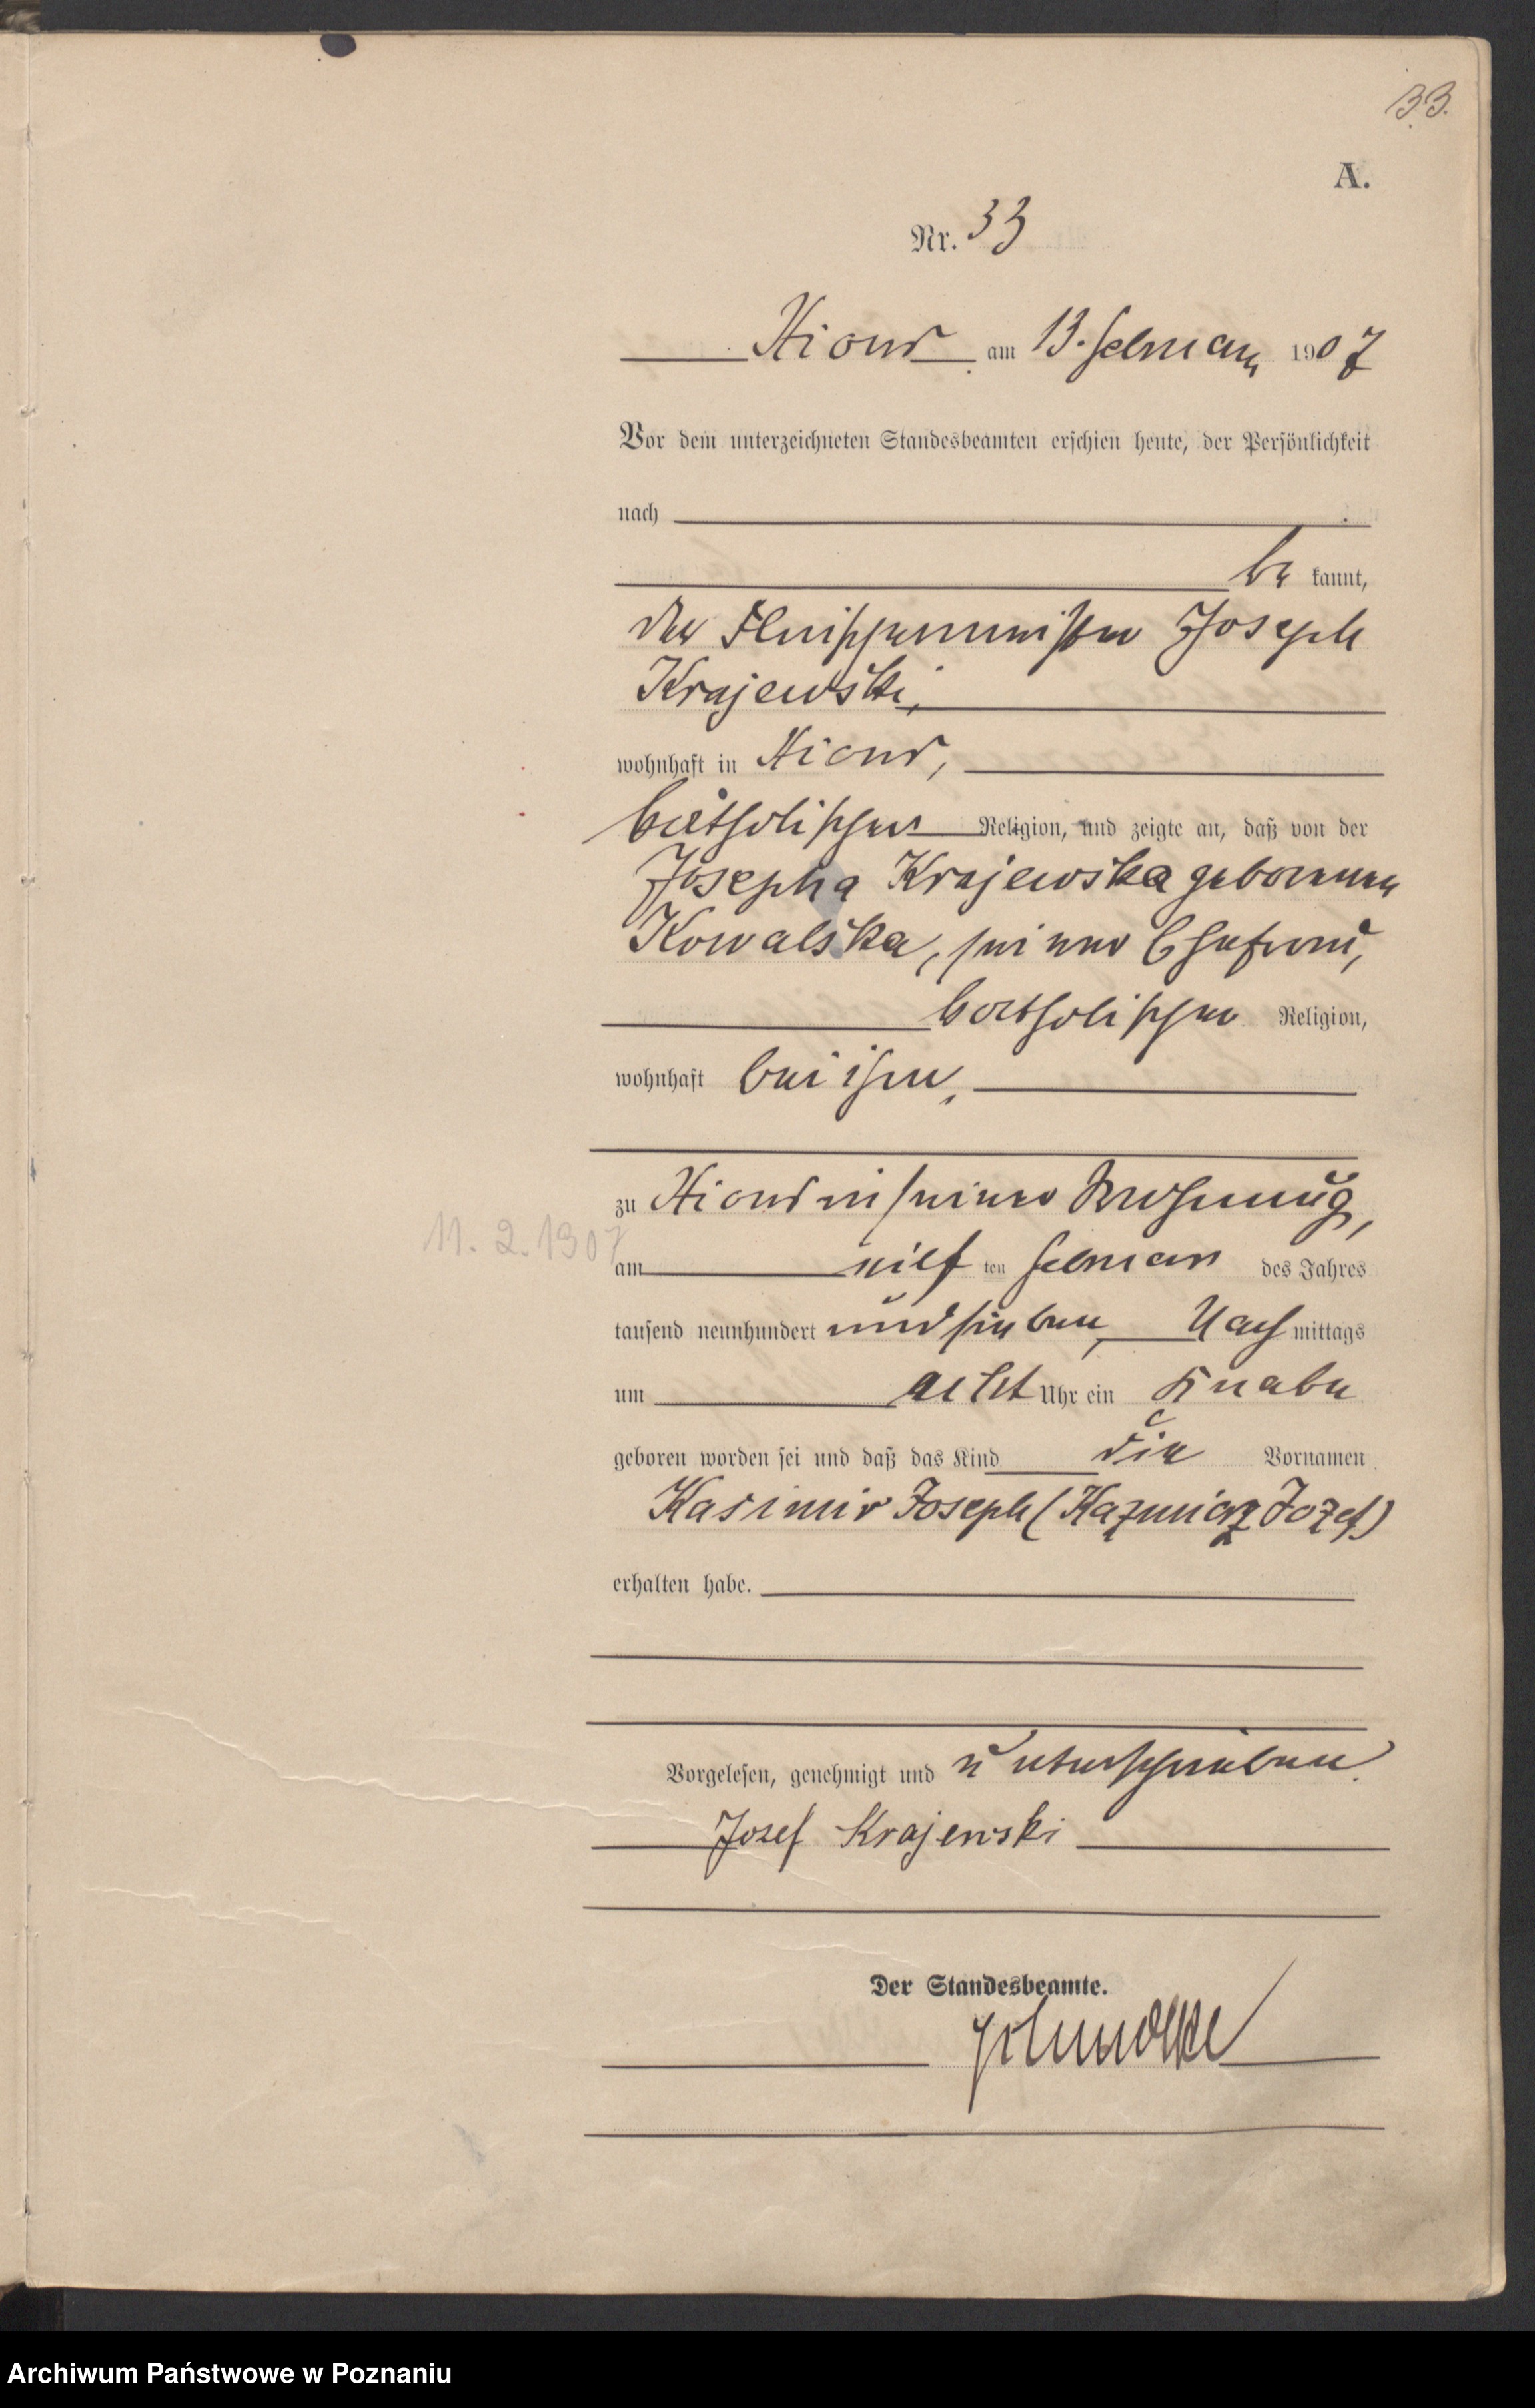 33.
A.
Nr. 33
Xions am 13. Februar 1907
Vor dem unterzeichneten Standesbeamten erschien heute, der Persönlichkeit
nach
be kannt,
der Fleischermeister Joseph
Krajewski,
wohnhaft in Xions,
katholischer Religion, und zeigte an, daß von der
Josepha Krajewska geborenen
Kowalska, seiner Ehefrau,
katholischer Religion,
wohnhaft bei ihm,
zu Xions in seiner Wohnung,
11. 2. 1907
am elf ten Februar des Jahres
tausend neunhundert und sieben, Nach mittags
um acht Uhr ein Knabe
geboren worden sei und daß das Kind die Vornamen
Kasimir Joseph (Kazmierz Jozef)
erhalten habe.
Vorgelesen, genehmigt und unterschrieben.
Josef Krajewski
Der Standesbeamte.
Archiwum Państwowe w Poznaniu